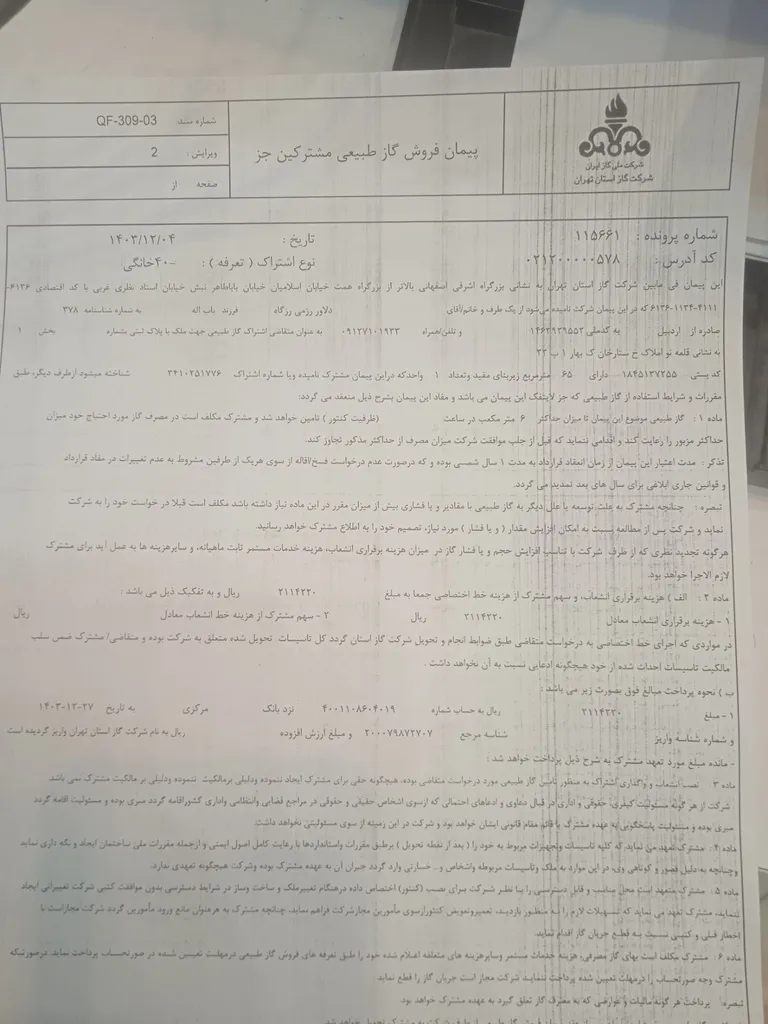 شرکت ملی گاز ایران
شرکت گاز استان تهران
پیمان فروش گاز طبیعی مشترکین جز
شماره سند: QF-309-03
ویرایش : 2
صفحه از
شماره پرونده : ۱۱۵۶۶۱ تاریخ : ۱۴۰۳/۱۲/۰۴
کد آدرس : ۰۲۱۲۰۰۰۰۰۵۷۸ نوع اشتراک ( تعرفه ) : -۴۰خانگی
این پیمان فی مابین شرکت گاز استان تهران به نشانی بزرگراه اشرفی اصفهانی بالاتر از بزرگراه همت خیابان اسلامیان خیابان باباطاهر نبش خیابان استاد نظری غربی با کد اقتصادی ۶۱۳۶-
۴۱۱۱-۱۱۳۴-۶۱۳۶ که در این پیمان شرکت نامیده می‌شود از یک طرف و خانم/آقای دلاور رزمی رزگاه فرزند باب اله به شماره شناسنامه ۳۷۸
صادره از اردبیل به کدملی ۱۴۶۳۹۳۹۵۵۳ و تلفن/همراه ۰۹۱۲۷۱۰۱۹۳۳ به عنوان متقاضی اشتراک گاز طبیعی جهت ملک با پلاک ثبتی بشماره بخش ۱
به نشانی قلعه نو املاک خ ستارخان ک بهار ۱ پ ۲۲
کد پستی ۱۸۴۵۱۳۷۲۵۵ دارای ۶۵ مترمربع زیربنای مفید وتعداد ۱ واحدکه دراین پیمان مشترک نامیده وبا شماره اشتراک ۳۴۱۰۲۵۱۷۷۶ شناخته میشود ازطرف دیگر، طبق
مقررات و شرایط استفاده از گاز طبیعی که جز لاینفک این پیمان می باشد و مفاد این پیمان بشرح ذیل منعقد می گردد:
ماده ۱ : گاز طبیعی موضوع این پیمان تا میزان حداکثر ۶ متر مکعب در ساعت (ظرفیت کنتور ) تامین خواهد شد و مشترک مکلف است در مصرف گاز مورد احتیاج خود میزان
حداکثر مزبور را رعایت کند و اقدامی ننماید که قبل از جلب موافقت شرکت میزان مصرف از حداکثر مذکور تجاوز کند.
تذکر : مدت اعتبار این پیمان از زمان انعقاد قرارداد به مدت ۱ سال شمسی بوده و که درصورت عدم درخواست فسخ/اقاله از سوی هریک از طرفین مشروط به عدم تغییرات در مفاد قرارداد
و قوانین جاری ابلاغی برای سال های بعد تمدید می گردد.
تبصره : چنانچه مشترک به علت توسعه یا علل دیگر به گاز طبیعی با مقادیر و یا فشاری بیش از میزان مقرر در این ماده نیاز داشته باشد مکلف است قبلا در خواست خود را به شرکت
نماید و شرکت پس از مطالعه نسبت به امکان افزایش مقدار ( و یا فشار ) مورد نیاز، تصمیم خود را به اطلاع مشترک خواهد رسانید.
هرگونه تجدید نظری که از طرف شرکت با تناسب افزایش حجم و یا فشار گاز در میزان هزینه برقراری انشعاب، هزینه خدمات مستمر ثابت ماهیانه، و سایرهزینه ها به عمل آید برای مشترک
لازم الاجرا خواهد بود.
ماده ۲ : الف ) هزینه برقراری انشعاب، و سهم مشترک از هزینه خط اختصاصی جمعا به مبلغ ۲۱۱۴۲۲۰ ریال و به تفکیک ذیل می باشد :
۱ - هزینه برقراری انشعاب معادل ۲۱۱۴۲۲۰ ریال ۲ - سهم مشترک از هزینه خط انشعاب معادل ریال
در مواردی که اجرای خط اختصاصی به درخواست متقاضی طبق ضوابط انجام و تحویل شرکت گاز استان گردد کل تاسیسات تحویل شده متعلق به شرکت بوده و متقاضی/ مشترک ضمن سلب
مالکیت تاسیسات احداث شده از خود هیچگونه ادعایی نسبت به آن نخواهد داشت .
ب ) نحوه پرداخت مبالغ فوق بصورت زیر می باشد :
۱ - مبلغ ۲۱۱۴۲۲۰ ریال به حساب شماره ۴۰۰۱۱۰۸۶۰۴۰۱۹ نزد بانک مرکزی به تاریخ ۱۴۰۳-۱۲-۲۷
و شماره شناسه واریز شناسه مرجع ۲۰۰۰۷۹۸۷۲۷۰۷ و مبلغ ارزش افزوده ریال به نام شرکت گاز استان تهران واریز گردیده است
- مانده مبلغ مورد تعهد مشترک به شرح ذیل پرداخت خواهد شد :
ماده ۳ نصب انشعاب و واگذاری اشتراک به منظور تامین گاز طبیعی مورد درخواست متقاضی بوده، هیچگونه حقی برای مشترک ایجاد ننموده ودلیلی برمالکیت ننموده ودلیلی بر مالکیت مشترک نمی باشد.
شرکت از هر گونه مسئولیت کیفری، حقوقی و اداری در قبال دعاوی و ادعاهای احتمالی که ازسوی اشخاص حقیقی و حقوقی در مراجع قضایی وانتظامی واداری کشوراقامه گردد مبری بوده و مسئولیت اقامه گردد
مبری بوده و مسئولیت پاسخگویی به عهده مشترک یا قائم مقام قانونی ایشان خواهد بود و شرکت در این زمینه از سوی مسئولیتی نخواهد داشت.
ماده ۴ : مشترک تعهد می نماید که کلیه تاسیسات وتجهیزات مربوط به خود را ( بعد از نقطه تحویل ) برطبق مقررات واستانداردها با رعایت کامل اصول ایمنی و ازجمله مقررات ملی ساختمان ایجاد و نگه داری نماید
وچنانچه به دلیل قصور و کوتاهی وی، در این موارد به ملک وتاسیسات مربوطه واشخاص و.. خسارتی وارد گردد جبران آن به عهده مشترک بوده وشرکت هیچگونه تعهدی ندارد.
ماده ۵ : مشترک متعهد است محل مناسب و قابل دسترسی را بنا بنظر شرکت برای نصب (کنتور) اختصاص داده درهنگام تغییرملک و ساخت وساز در شرایط دسترسی بدون موافقت کتبی شرکت تغییراتی ایجاد
ننماید، مشترک تعهد می نماید که تسهیلات لازم را به منظور بازدید، تعمیروتعویض کنتورازسوی مأمورین مجازشرکت فراهم نماید، چنانچه مشترک به هرعنوان مانع ورود مأمورین گردد شرکت مجازاست با
اخطار قبلی و کتبی نسبت به قطع جریان گاز اقدام نماید.
ماده ۶ : مشترک مکلف است بهای گاز مصرفی، هزینه خدمات مستمر وسایرهزینه های متعلقه اعلام شده خود را طبق تعرفه های فروش گاز طبیعی درمهلت تعیین شده در صورتحساب پرداخت نماید، درصورتیکه
مشترک وجه صورتحساب را درمهلت تعیین شده پرداخت ننماید شرکت مجاز است جریان گاز را قطع نماید.
تبصره: پرداخت هر گونه مالیات و عوارضی که به مصرف گاز تعلق گیرد به عهده مشترک خواهد بود.